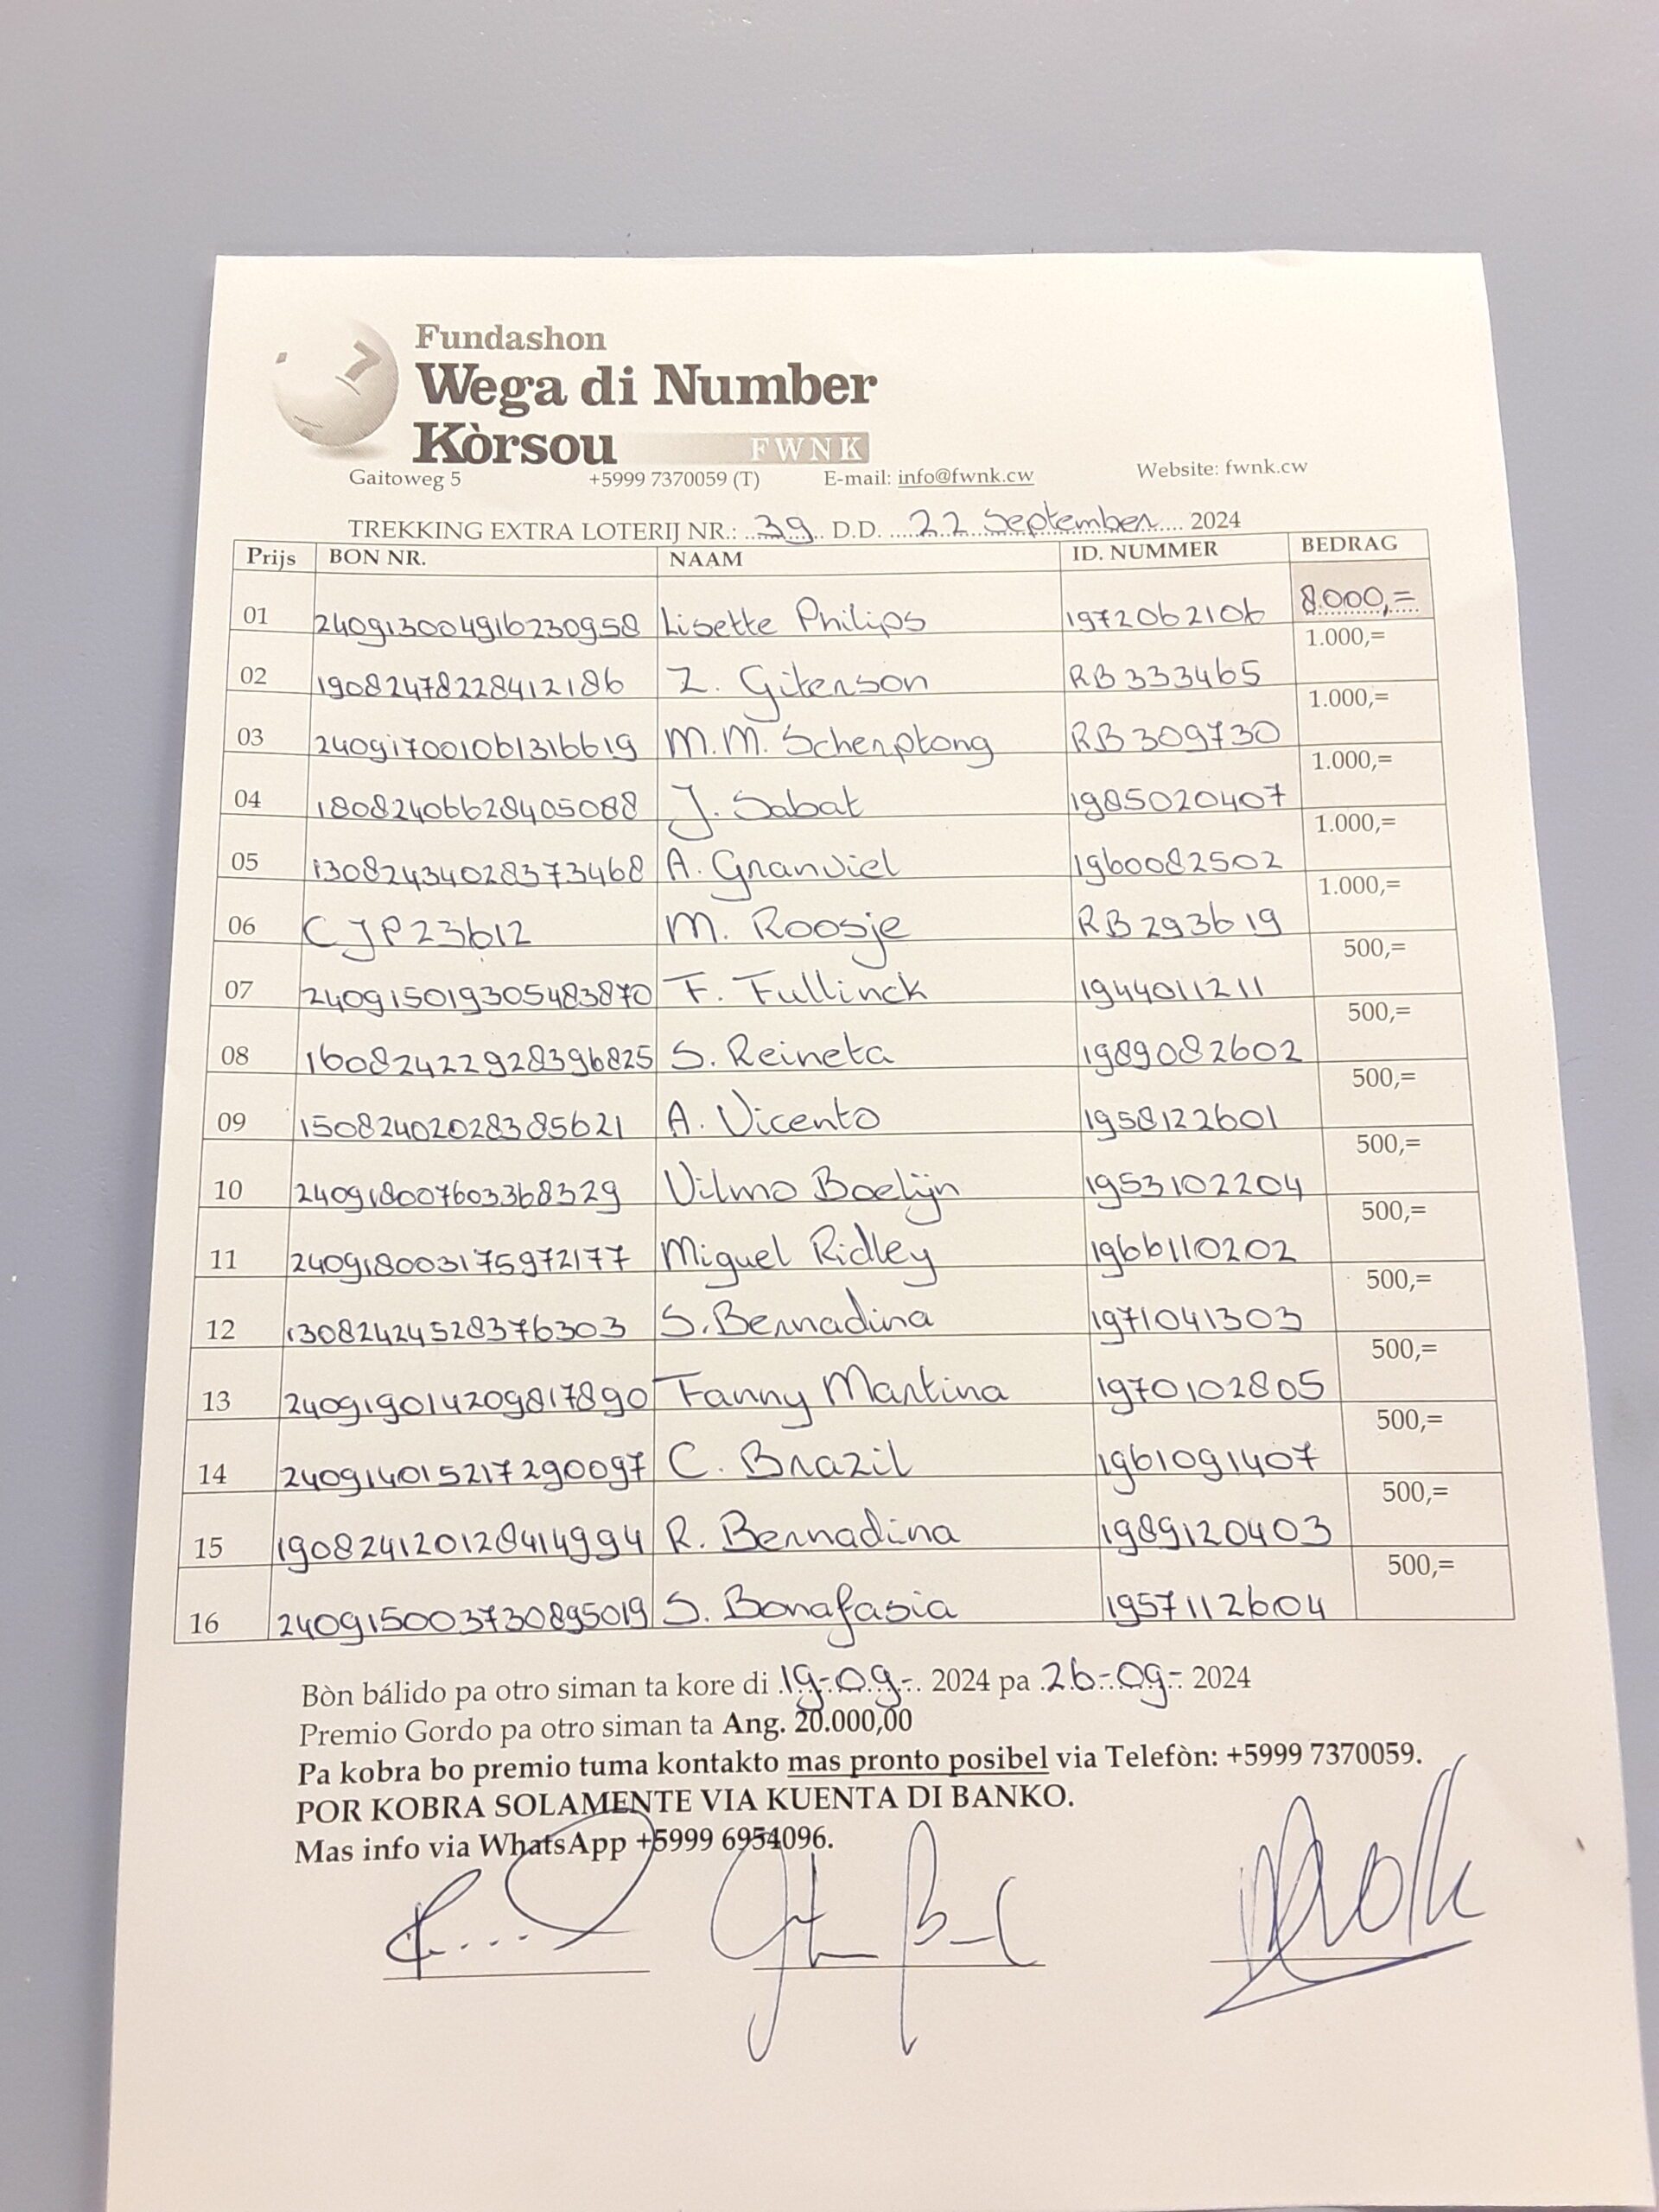 7
Fundashon
Wega di Number
Kòrsou FWNK
Gaitoweg 5 +5999 7370059 (T) E-mail: info@fwnk.cw Website: fwnk.cw
TREKKING EXTRA LOTERIJ NR.: 39 D.D. 22 September 2024
Prijs BON NR. NAAM ID. NUMMER BEDRAG
01 240913004916230958 Lisette Philips 1972062106 8.000,=
02 19082478228412186 Z. Gitenson RB333465 1.000,=
03 240917001061316619 M.M. Schenptong RB309730 1.000,=
04 18082406628405088 J. Sabat 1985020407 1.000,=
05 13082434028373468 A. Granviel 1960082502 1.000,=
06 CJP23612 M. Roosje RB293619 1.000,=
07 240915019305483870 F. Fullinck 1944011211 500,=
08 16082422928396825 S. Reineta 1989082602 500,=
09 15082402028385621 A. Vicento 1958122601 500,=
10 240918007603368329 Vilmo Boelijn 1953102204 500,=
11 240918003175972177 Miguel Ridley 1966110202 500,=
12 13082424528376303 S. Bernadina 1971041303 500,=
13 240919014209817890 Fanny Martina 1970102805 500,=
14 240914015217290097 C. Brazil 1961091407 500,=
15 190824120128414994 R. Bernadina 1989120403 500,=
16 240915003730895019 S. Bonafasia 1957112604 500,=
Bòn bálido pa otro siman ta kore di 19-09-. 2024 pa 26-09- 2024
Premio Gordo pa otro siman ta Ang. 20.000,00
Pa kobra bo premio tuma kontakto mas pronto posibel via Telefòn: +5999 7370059.
POR KOBRA SOLAMENTE VIA KUENTA DI BANKO.
Mas info via WhatsApp +5999 6954096.